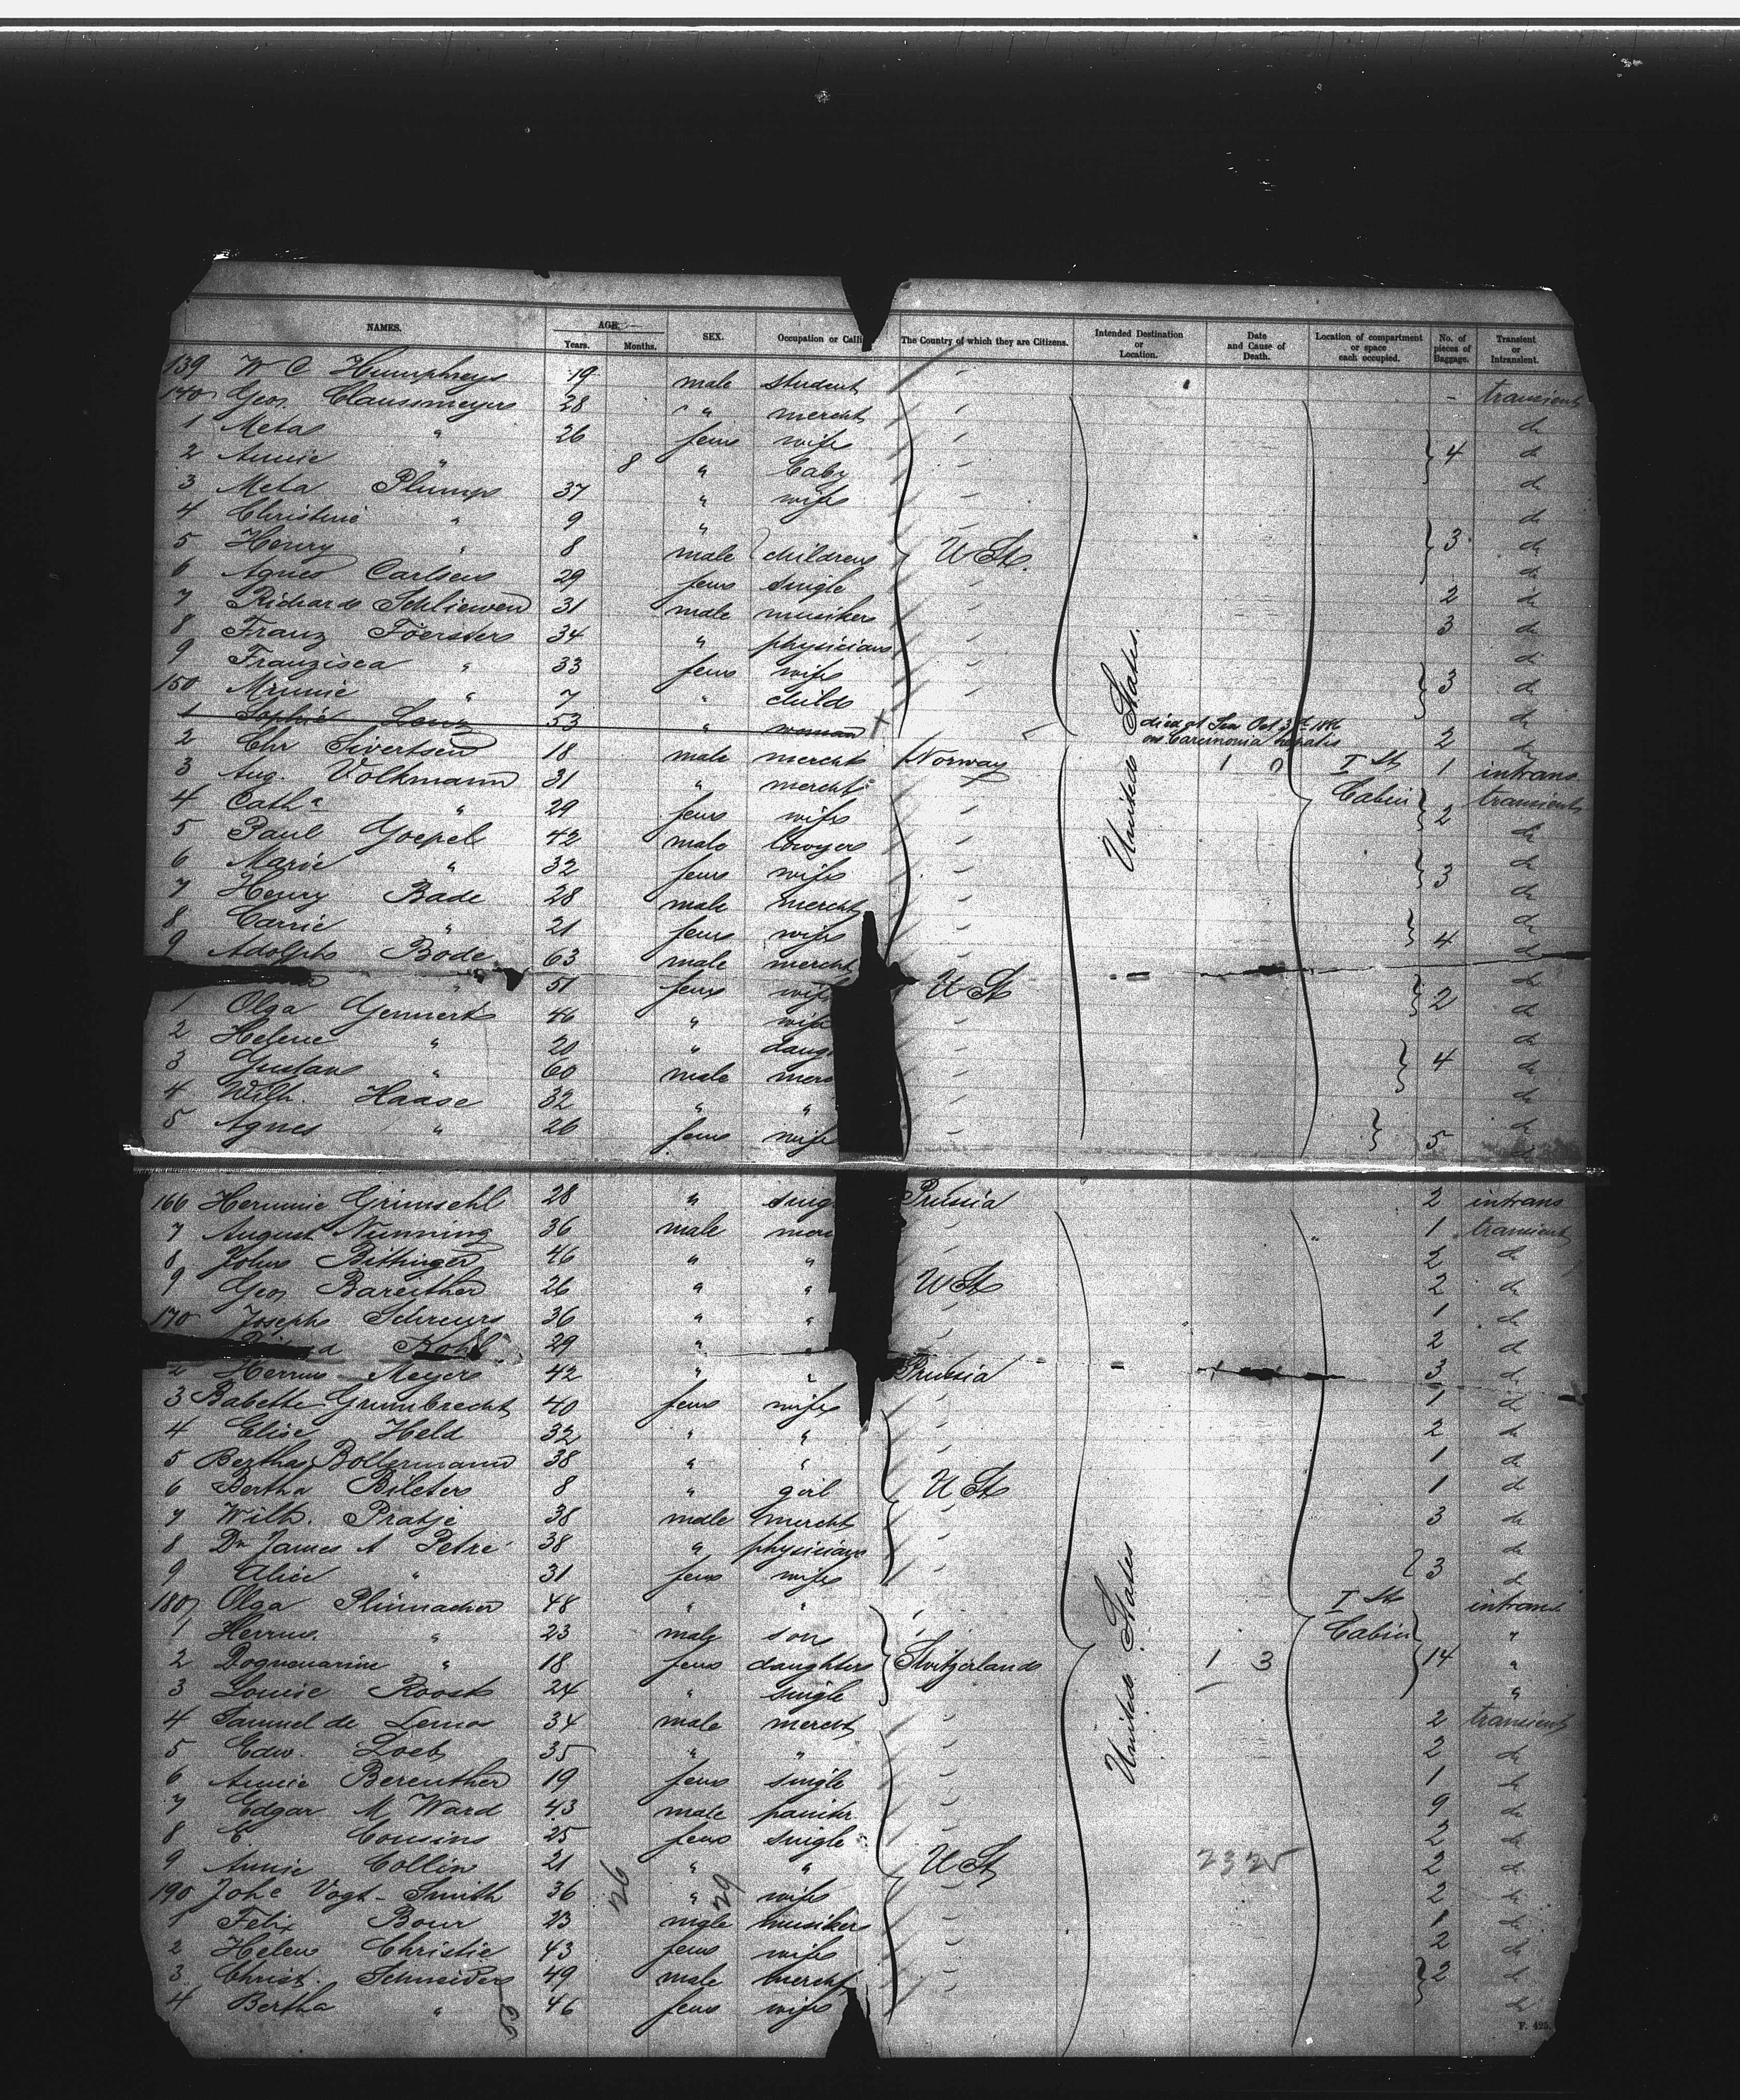 NAMES. AGE. Years. Months. SEX. Occupation or Calli The Country of which they are Citizens. Intended Destination or Location. Date and Cause of Death. Location of compartment or space each occupied. No. of pieces of Baggage. Transient or Intransient.
139 W C Humphreys 19 male student - transient
140 Geo. Claussmeyer 28 " mercht do
1 Meta " 26 fem wife 4 do
2 Annie " 8 " baby do
3 Meta Plump 37 " wife do
4 Christine " 9 " do
5 Henry " 8 male children U St. 3 do
6 Agnes Carlsen 29 fem single 2 do
7 Richard Schliewen 31 male musiker 3 do
8 Franz Foerster 34 " physician do
9 Franzisca " 33 fem wife 3 do
150 " 7 " child do
1 Sophie 53 " woman died at Sea Oct 3 2 do
2 Chr Sivertsen 18 male mercht Norway United States. 1 0 I St Cabin 1 intrans
3 Aug. Volkmann 31 " mercht transient
4 Cath " 29 fem wife 2 do
5 Paul Goepel 42 male lawyer do
6 Marie " 32 fem wife 3 do
7 Henry Bade 28 male mercht do
8 Carrie " 21 fem wife 4 do
9 Adolph Bode 63 male mercht do
" 51 fem wife U St 2 do
1 Olga Gennert 46 " wife do
2 Helene " 20 " daug do
3 Gustav " 60 male mer 4 do
4 Wilh. Haase 32 " " do
5 Agnes " 26 fem wife 5 do
166 Hermine Grimsehl 28 " sing Prussia 2 intrans
7 August Nunning 36 male mer 1 transient
8 John Bittinger 46 " " 2 do
9 Geo. Bareither 26 " " U St 2 do
170 Joseph Schreurs 36 " " 1 do
Kohl 29 " " 2 do
2 Herm Meyer 42 " " Prussia 3 do
3 Babette Grumbrecht 40 fem wife 1 do
4 Elise Held 32 " " 2 do
5 Bertha Bollermann 38 " " 1 do
6 Bertha Bileter 8 " girl U St 1 do
7 Wilh. Pratje 38 male mercht 3 do
8 Dr James A Petrie 38 " physician do
9 Alice " 31 fem wife 3 do
180 Olga Plümacher 48 " " United States I St Cabin intrans
1 Herm. " 23 male son "
2 " 18 fem daughter Switzerland 1 3 14 "
3 Louise Roost 24 " single "
4 Samuel de Lemos 34 male mercht 2 transient
5 Edw. Loeb 35 " " 2 do
6 Annie Bereuther 19 fem single 1 do
7 Edgar M Ward 43 male painter 9 do
8 E. Cousins 25 fem single 2 do
9 Annie Collin 21 " " U St 23 25 2 do
190 Joh Vogt-Smith 36 26 " 29 wife 2 do
1 Felix Bour 23 male musiker 1 do
2 Helen Christie 43 fem wife 2 do
3 Christ. Schneider 49 male mercht 2 do
4 Bertha " 46 fem wife do
F. 425.